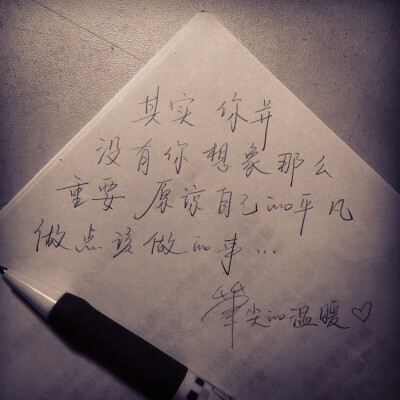 其实 你并
没有你想象那么
重要 原谅自己的平凡
做点该做的事...
笔尖的温暖♡